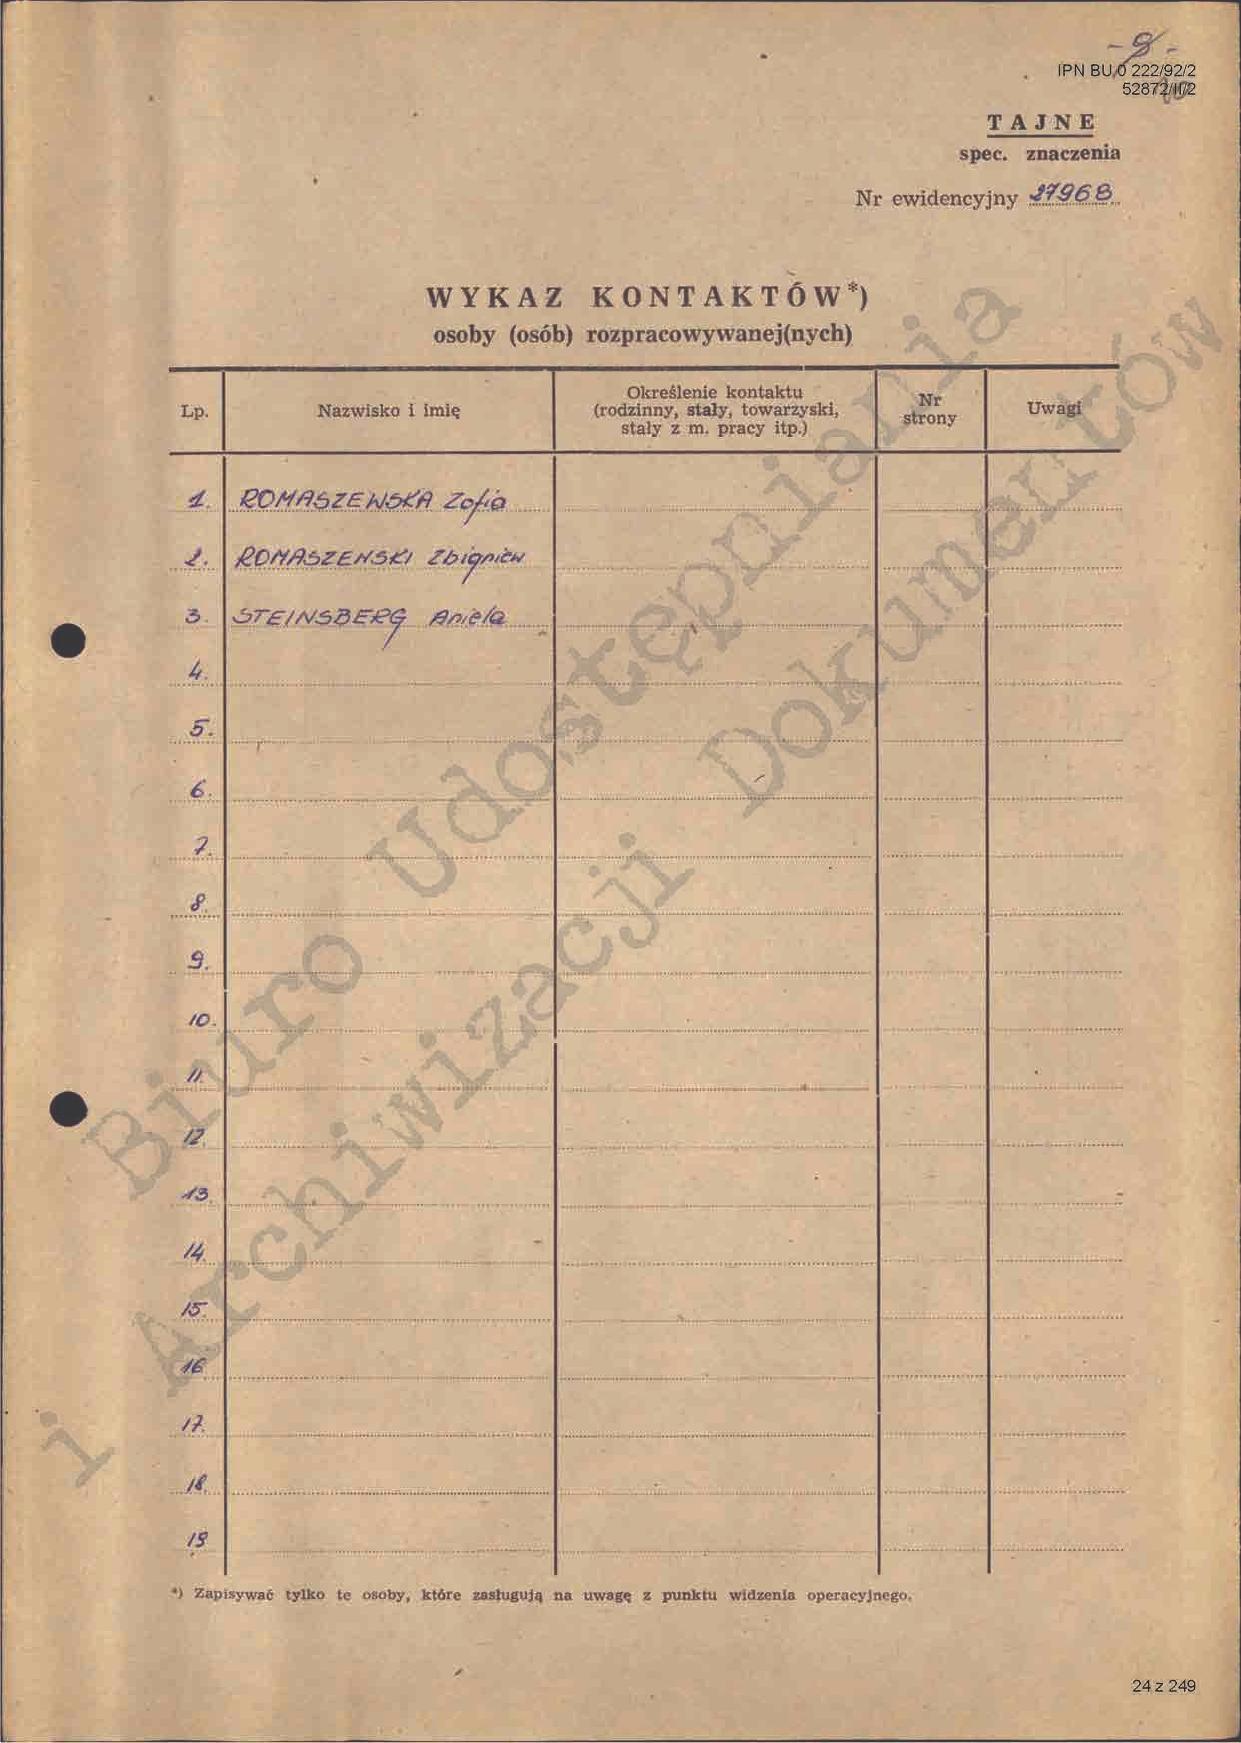 - 9 -
IPN BU 0 222/92/2
52872/II/2
10
TAJNE
spec. znaczenia
Nr ewidencyjny 27968
WYKAZ KONTAKTÓW*)
osoby (osób) rozpracowywanej(nych)
Lp. Nazwisko i imię Określenie kontaktu (rodzinny, stały, towarzyski, stały z m. pracy itp.) Nr strony Uwagi
1. ROMASZEWSKA Zofia
2. ROMASZEWSKI Zbigniew
3. STEINSBERG Aniela
4.
5.
6.
7.
8.
9.
10.
11.
12.
13.
14.
15.
16.
17.
18.
19
*) Zapisywać tylko te osoby, które zasługują na uwagę z punktu widzenia operacyjnego.
24 z 249
Biuro Udostępniania
i Archiwizacji Dokumentów